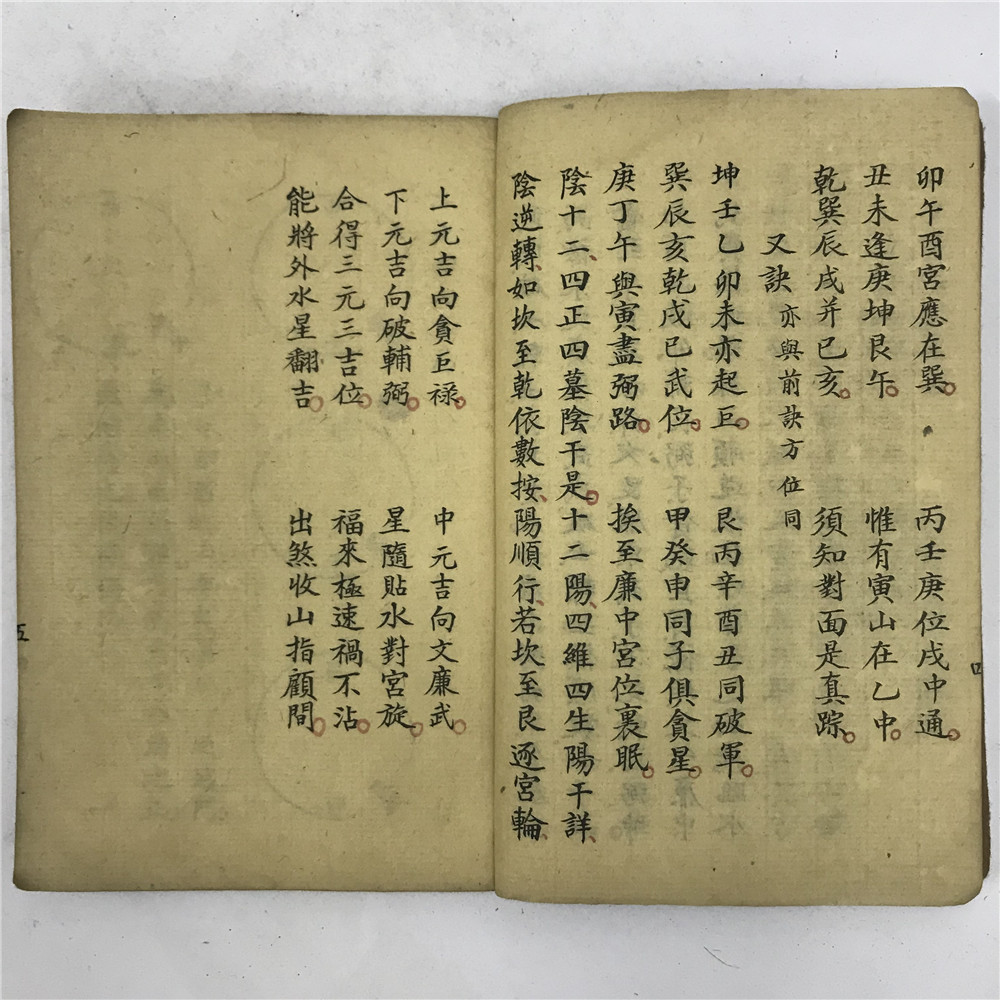 卯午酉宮應在巽。丙壬庚位戌中通。
丑未逢庚坤艮午。惟有寅山在乙中。
乾巽辰戌并巳亥。須知對面是真踪。
又訣 亦與前訣方位同
坤壬乙卯未亦起巨。艮丙辛酉丑同破軍。
巽辰亥乾戌巳武位。甲癸申同子俱貪星。
庚丁午與寅盡弼路。挨至廉中宮位裏眠。
陰十二、四正四墓陰干是。十二陽、四維四生陽干詳、
陰逆轉、如坎至乾依數按、陽順行、若坎至艮逐宮輪、
四
上元吉向貪巨禄。中元吉向文廉武。
下元吉向破輔弼。星隨貼水對宮旋。
合得三元三吉位。福來極速禍不沾。
能將外水星翻吉。出煞收山指顧間。
五